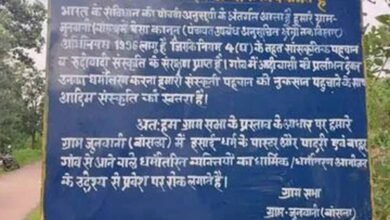 भारत के संविधान की पांचवी अनुसूची के अंतर्गत आता है हमारे ग्राम-
जुनवानी पेसा कानून (पंचायत उपबंध अनुसूचित क्षेत्रों का विस्तार)
अधिनियम 1996 लागू है जिसके नियम 4 (घ) के तहत सांस्कृतिक पहचान
व रूढ़ीवादी संस्कृति के संरक्षण प्राप्त है। गांव में आदीवासी को प्रलोभन देकर
उनका धर्मांतरण करना हमारी संस्कृती पहचान को नुकसान पहुचाने के साथ
आदिम संस्कृति को खतरा है।
अतः हम ग्राम सभा के प्रस्ताव के आधार पर हमारे
ग्राम जुनवानी में इसाई धर्म के पास्टर और पादरी एवं बाहर
गांव से आने वाले धर्मांतरित व्यक्तियों का धार्मिक / धर्मांतरण आयोजन
के उद्देश्य से प्रवेश पर रोक लगाते है।
ग्राम सभा
ग्राम-जुनवानी